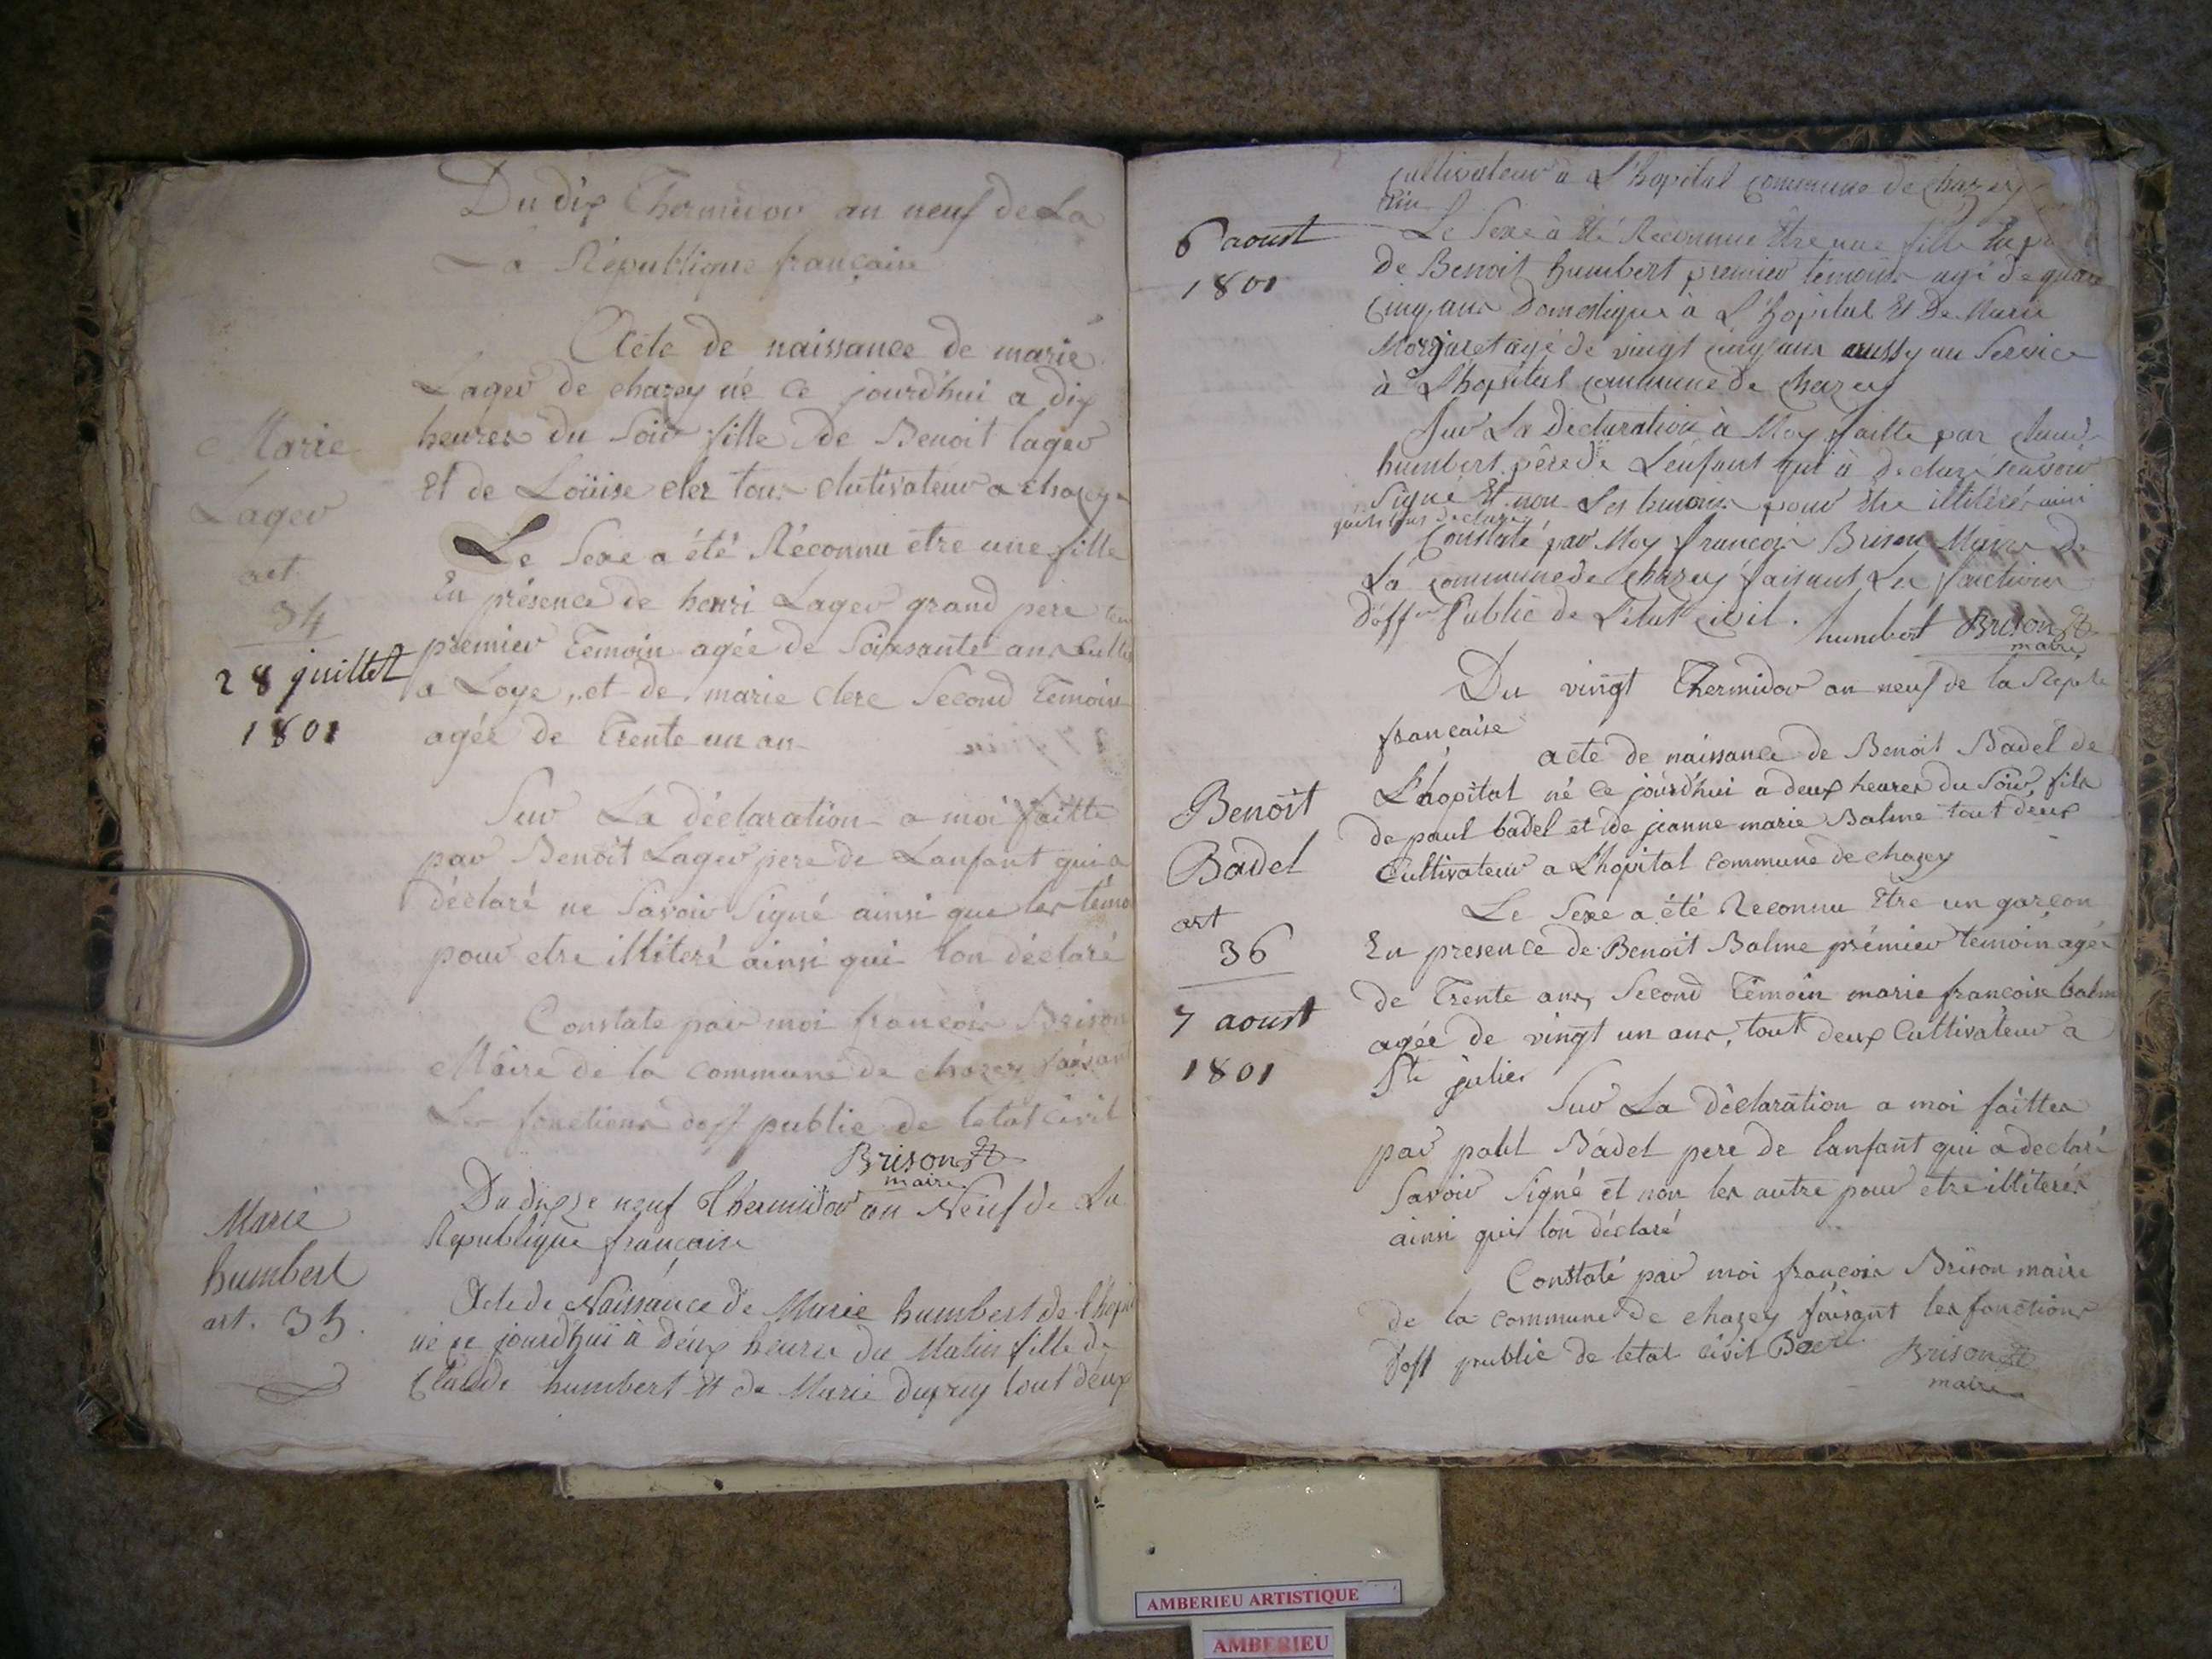 Du dix Thermidor an neuf de La
La République française
Acte de naissance de marie
Lager de chazey né ce jourd'hui a dix
heures du Soir fille de Benoit lager
Et de Loüise clerc tous Cultivateur a chazey
Le Sexe a été Réconnu etre une fille
En présence de henri Lager grand pere
premier Temoin agée de Soixsante ans
a Loye, et de marie clerc Second Temoin
agée de Trente un an
Sur La déclaration a moi faitte
par Benoit Lager pere de Lanfant qui a
déclaré ne Savoir Signé ainsi que les témo
pour etre illiteré ainsi qui lon déclaré
Constate par moi françois Brison
Maire de la commune de chazey faisant
Les fonctions doff public de letat Civil
Brison
maire
Marie
Lager
art
34
28 juillet
1801
Du dix neuf Thermidor an Neuf de La
Republique française
Acte de Naissance de Marie humbert de l'hopi
né ce jourd'huï à deux heures du Matin fille de
Claude humbert Et de Marie Dupuy tout deux
Marie
humbert
art. 35.
cultivateur à L'hopital commune de chazey
ain
Le Sexe à Eté Reconnue Etre une fille En
de Benoit humbert premier temoin agé de quar
Cinq ans Domestique à L'hopital Et De Marie
Morgaret agé de vingt cinq ans aussy au Service
à L'hopital commune de chazey
Sur La Declaration à Moy faitte par Claude
humbert père de Lenfant qui à declaré scavoir
Signé Et non Les temoins pour Etre illiteré ainsi
Constaté par Moy françois Brison Maire de
La commune de Chazey faisant Les fonctions
D'off Public de L'état civil.
humbert Brison
maire
6 aoust
1801
Du vingt Thermidor an neuf de la Repu
française
acte de naissance de Benoit Badel de
L'hopital né ce jourd'hui a deux heures du Soir, fils
de paul badel et de jeanne marie Balme tout deux
Cultivateur a L'hopital commune de chazey
Le Sexe a été Reconnu Etre un garçon
En presence de Benoit Balme prémier temoin agée
de Trente ans, Second Témoin marie françoise balm
agée de vingt un ans, tout deux Cultivateur a
Ste julie
Sur La déclaration a moi faittes
par paul Badel pere de lanfant qui a declaré
Savoir Signé et non les autre pour etre illiterés
ainsi qui lon déclaré
Constaté par moi françois Brison maire
de la commune de chazey faisant les fonctions
doff public de letat civil Badel
Brison
maire
Benoit
Badel
art
36
7 aoust
1801
AMBERIEU ARTISTIQUE
AMBERIEU